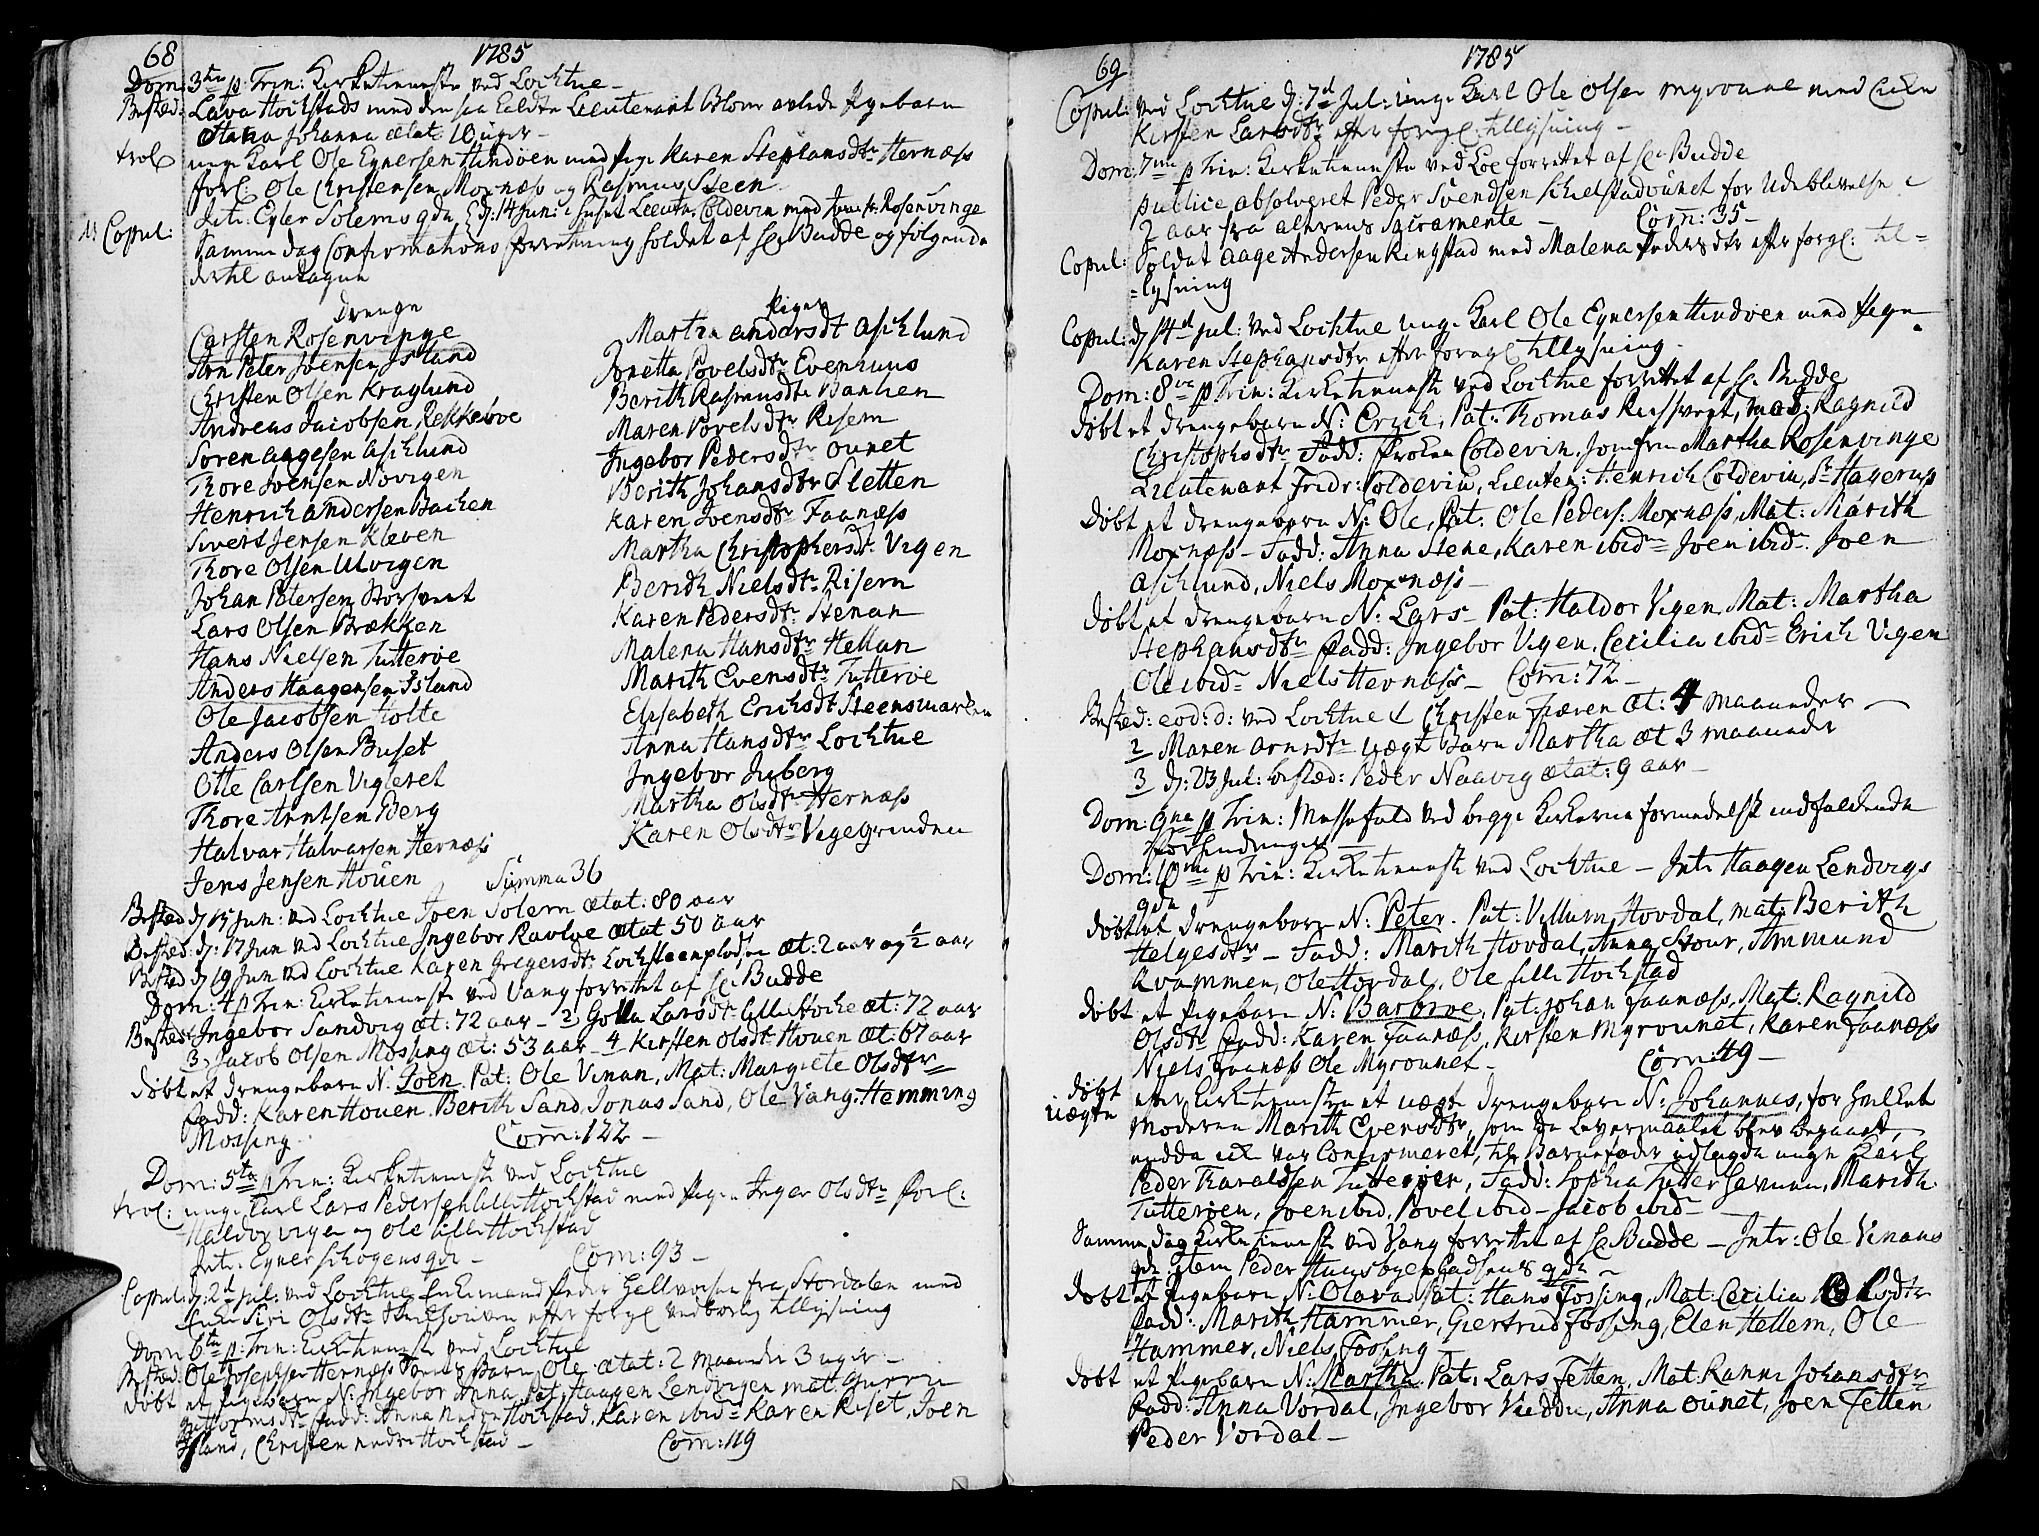 68 1785
Dom: 3tia p. Trin: Kirketieneste ved Lochtue
Bested: Lava Hochstads med den saa kaldte Lieutenant Blom avlede Pigebarn
Maria Johanna ætat: 10 uger
trol: unge Karl Ole Egnersen Hindöen med Pige Karen Stephansdtr Hernæss
forl: Ole Christensen Moxnæss og Rasmus Steen
Intr: Egler Solems qda
11 Copul: d: 14 Jun: i huset Lieut. Coldevin med Jomfr: Rosenvinge
Samme dag Confirmations forretning holdet af Hr Budde og følgende
dertil antagne
Drenge
Carsten Rosenvinge
Arn Peter Joensen Island
Christen Olsen Kraglund
Andreas Jacobsen Rekkeröe
Soren Aagesen Aschlund
Thore Joensen Növigen
Henrich Andersen Bachen
Sivert Jensen Kleven
Thore Olsen Ulvigen
Johan Petersen Storsvent
Lars Olsen Brækken
Hans Nielsen Tutteröe
Anders Haagensen Island
Ole Jacobsen Holte
Anders Olsen Buset
Otte Carlsen Vigleret
Thore Arntsen Berg
Halvar Halvarsen Hernæss
Jens Jensen Houen
Piger
Martha Andersdt Aschlund
Jonetta Povelsdtr Evenhuus
Berith Rasmusdtr Banken
Maren Povelsdtr Risem
Ingebor Pedersdtr Ounet
Berith Johansdtr Sletten
Karen Joensdtr Faanæss
Martha Christophersdt: Vigen
Berith Nielsdtr Risem
Karen Pedersdtr Stenan
Malena Hansdtr Hellan
Marith Evensdtr Tutteröe
Elisabeth Erichsdt Steensmarken
Anna Hansdtr Lochtue
Ingebor Juberg
Martha Olsdtr Hernæss
Karen Olsdtr Vegegrinden
Summa 36
Bested d: 15 Jun: ved Lochtue Joen Solem ætat: 80 aar
Bested: d: 17 Jun ved Lochtue Ingebor Ravloe ætat 50 aar
Bested d: 19 Jun ved Lochtue Karen Gregersdtr Lochsteenplodsen æt: 2 aar og ½ aar
Dom: 4 p Trin: Kirketieneste ved Vang forrettet af Hr Budde
Bested: Ingebor Sandvig æt: 72 aar – 2 Golla Larsdt: Lille Hocke æt: 72 aar
3 Jacob Olsen Mossing æt: 53 aar 4 Kirsten Olsdt Houen æt: 67 aar
Döbt et drengebarn N: Joen Pat: Ole Vinan, Mat: Margrete Olsdtr
Fadd: Karen Houen. Berith Sand, Jonas Sand, Ole Vang, Hemming
Mossing. Com: 122 –
Dom: 5ta p Trin: Kirketieneste ved Lochtue
trol: unge Karl Lars Pedersen Lille Hochstad med Pigen Inger Olsdtr forl:
Haldor Vigen og Ole Lille Hochstad
Intr: Egner Schogens qda Com: 93 –
Copul: d: 2d Jul: ved Lochtue Enkemand Peder Hallvorsen fra Stordalen med
Enke Siri Olsdtr efter forgl vedbörlig tillysning
Dom: 6ta p: Trin: Kirketieneste ved Lochtue
Bested: Ole Josephsen Hernæss Barn Ole ætat: 2 maander 3 uger –
Döbt et Pigebarn N: Ingebor Anna, Pat: Haagen Lendvigen mat: Gurru
Guttormsdtr Fadd: Anna nedre Hochstad, Karen ibid= Karen Riset, Joen
Island, Christen nedre Hochstad – Com: 119
69 1785
Copul: ved Lochtue d: 7d Jul: unge Karl Ole Olsen Myrounet med Enke
Kirsten Larsdtr efter forgl: tillysning –
Dom: 7ma p Trin: Kirketieneste ved Loe forrettet af Hr Budde
publice absolveret Peder Svendsen Schielstadounet for Udeblivelse i
2 aar fra alterens Sacramente – Com: 35 –
Copul: Soldat Aage Andersen Ringstad med Malena Pedersdtr efter forgl: til=
=lysning
Copul: d: 14d Jul: ved Lochtue unge Karl Ole Egnersen Hindöen med Pigen
Karen Stephansdtr efter forgl tillysning
Dom: 8va p. Trin: Kirketieneste ved Lochtue forrettet af Hr Budde
Döbt et drengebarn N: Erich, Pat: Thomas Reesvent, mat: Ragnild
Christophsdtr Fadd: Fröken Coldevin, Jomfru Martha Rosenvinge
Lieutenant Fridr: Coldevin, Lieuten: Henrich Coldevin, Sr Hagerup
Döbt et drengebarn N: Ole, Pat: Ole Peders: Moxnæss, Mat: Marith
Moxnæss – Fadd: Anna Stene, Karen ibid= Joen ibid= Joen
Aschlund, Niels Moxnæss –
Döbt et drengebarn N: Lars – Pat: Haldor Vigen, Mat: Martha
Stephansdtr Fadd: Ingebor Vigen, Cecilia ibid= Erich Vigen
Ole ibid= Niels Hernæss – Com: 72 –
Bested: eod: d: ved Lochtue 1 Christen Fiæren æt: 4 maander –
2 Maren Arnsdtr uægte Barn Martha æt 3 maander
3 d: 23 Jul: bested: Peder Naavig ætat: 9 aar –
Dom: 9na p Trin: Messefald ved begge Kirkerne formedelst indfaldende
Forhindringer
Dom: 10ma p Trin: Kirketieneste ved Lochtue – Intr Haagen Lendvigs
qda
Döbt et drengebarn N: Peter. Pat: Villum Hovdal, mat: Berith
Helgesdtr – Fadd: Marith Hovdal, Anna Stour, Ammund
Kvammen, Ole Hovdal, Ole Lille Hochstad
Döbt et Pigebarn N: Barbroe, Pat: Johan Faanæss, Mat: Ragnild
Olsdtr Fadd: Karen Faanæss, Kirsten Myrounet, Karen Faanæss
Niels Faanæss Ole Myrounet – Com: 119 –
Döbt uægte efter Kirketienesten et uægte drengebarn N: Johannes, for hvilket
Moderen Marith Evensdtr, som da Leyermaalet blev begaaet,
endda ick var Confirmeret, til Barnefader udlagde unge Karl
Peder Tharaldsen Tutteröen, Fadd: Sophia Tutter havnen, Marith
Tutteröen, Joen ibid, Povel ibid – Jacob ibid –
Samme dag Kirketieneste ved Vang forrettet af Hr Budde – Intr: Ole Vinans
qda Item Peder Huusbye Gadsens qda –
Döbt et Pigebarn N: Olava. Pat: Hans Fossing, Mat: Cecilia Olsdtr
Fadd: Marith Hammer, Giertrud Fossing, Elen Hellem, Ole
Hammer, Niels Fossing –
Döbt et Pigebarn N: Martha Pat: Lars Fetten, Mat. Ranni Johansdtr
Fadd: Anna Vordal, Ingebor Viedde, Anna Ounet, Joen Fetten
Peder Vordal –